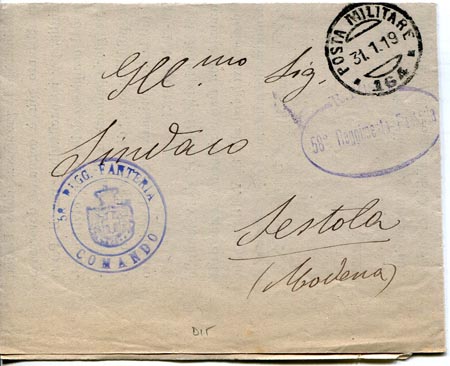 POSTA MILITARE
31.1.19
164
Ill.mo Sig.
Sindaco
58° Reggimento Fanteria
58° REGG. FANTERIA
COMANDO
Sestola
(Modena)